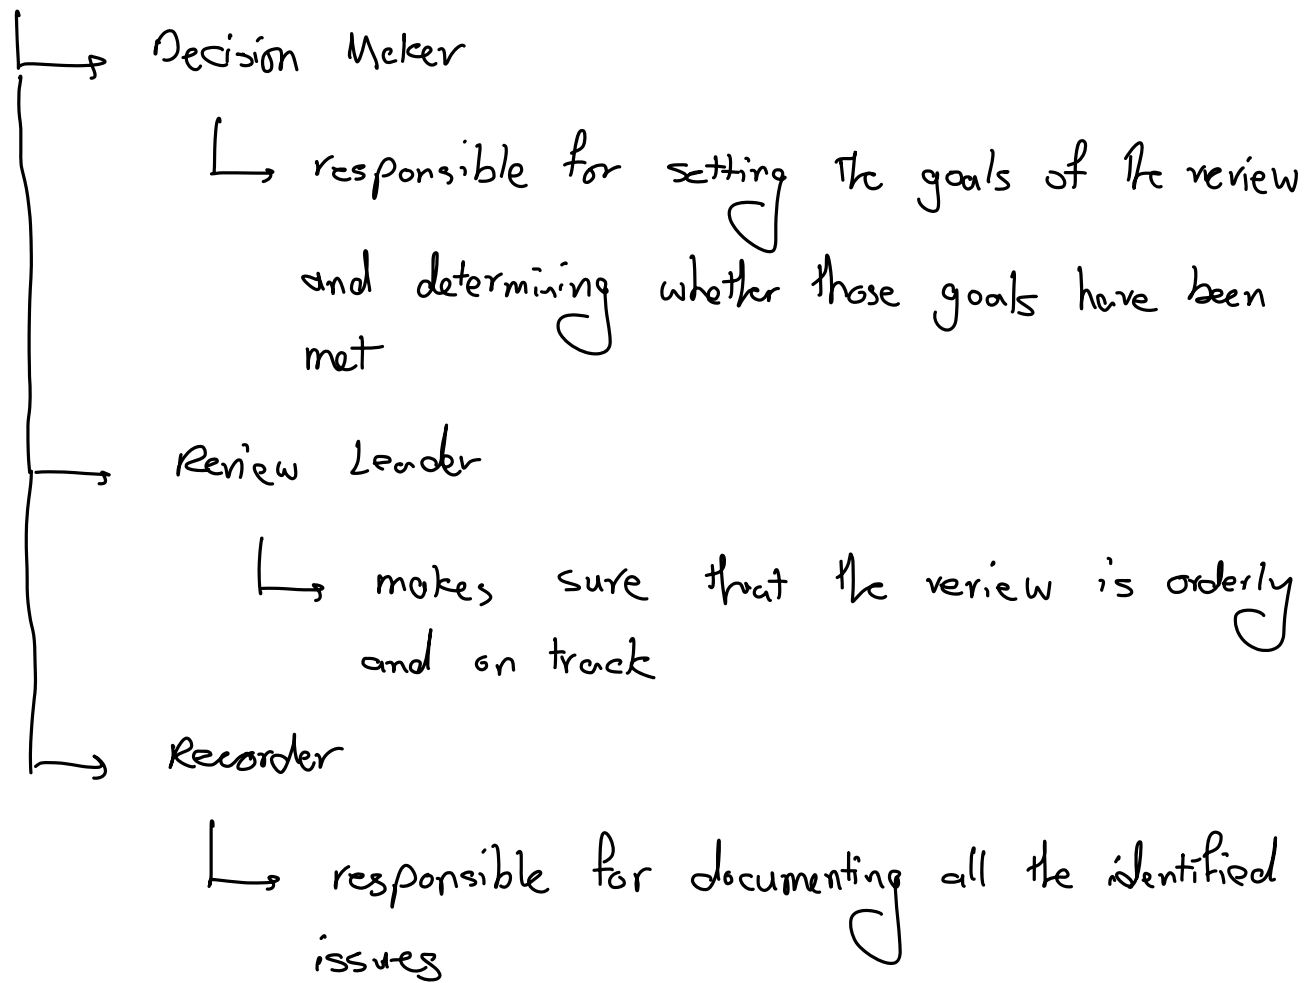 Decision Maker
responsible for setting the goals of the review
and determining whether those goals have been
met
Review Leader
makes sure that the review is orderly
and on track
Recorder
responsible for documenting all the identified
issues